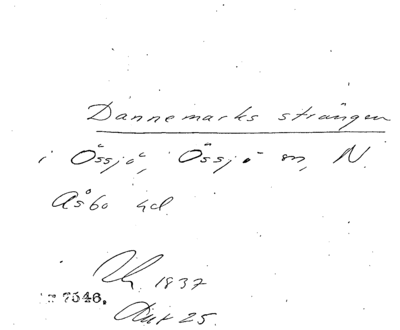 Dannemarks strängen
i Össjö, Össjö sn, N.
Åsbo hd.
1837
7546.
25.